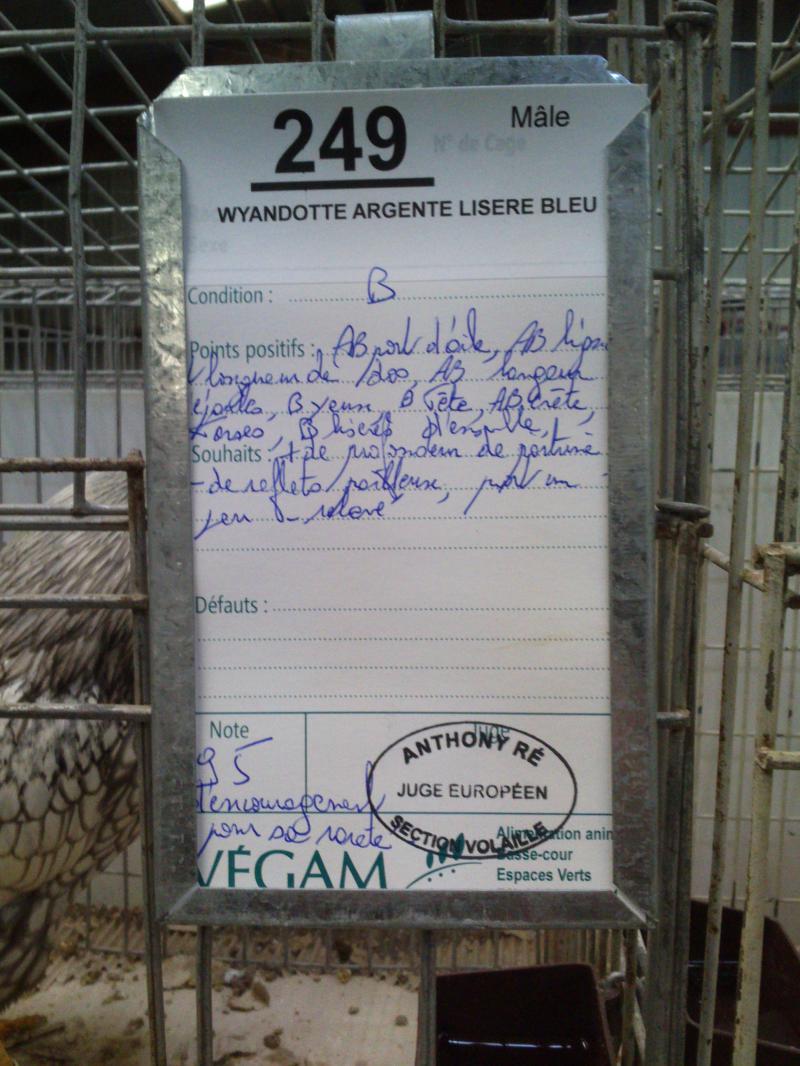 249
Mâle
N° de Cage
WYANDOTTE ARGENTE LISERE BLEU
Sexe
Condition : B
Points positifs : AB port d'aile, AB
longueur de dos, AB largeur
B yeux, B Tête, AB crête,
B liserés d'ensemble,
Souhaits : + de profondeur de poitrine
- de reflets pailleux, port un
peu relevé
Défauts :
Note
Juge
95
d'encouragement
pour sa rareté
ANTHONY RÉ
JUGE EUROPÉEN
SECTION VOLAILLE
VÉGAM
Alimentation anim
Basse-cour
Espaces Verts